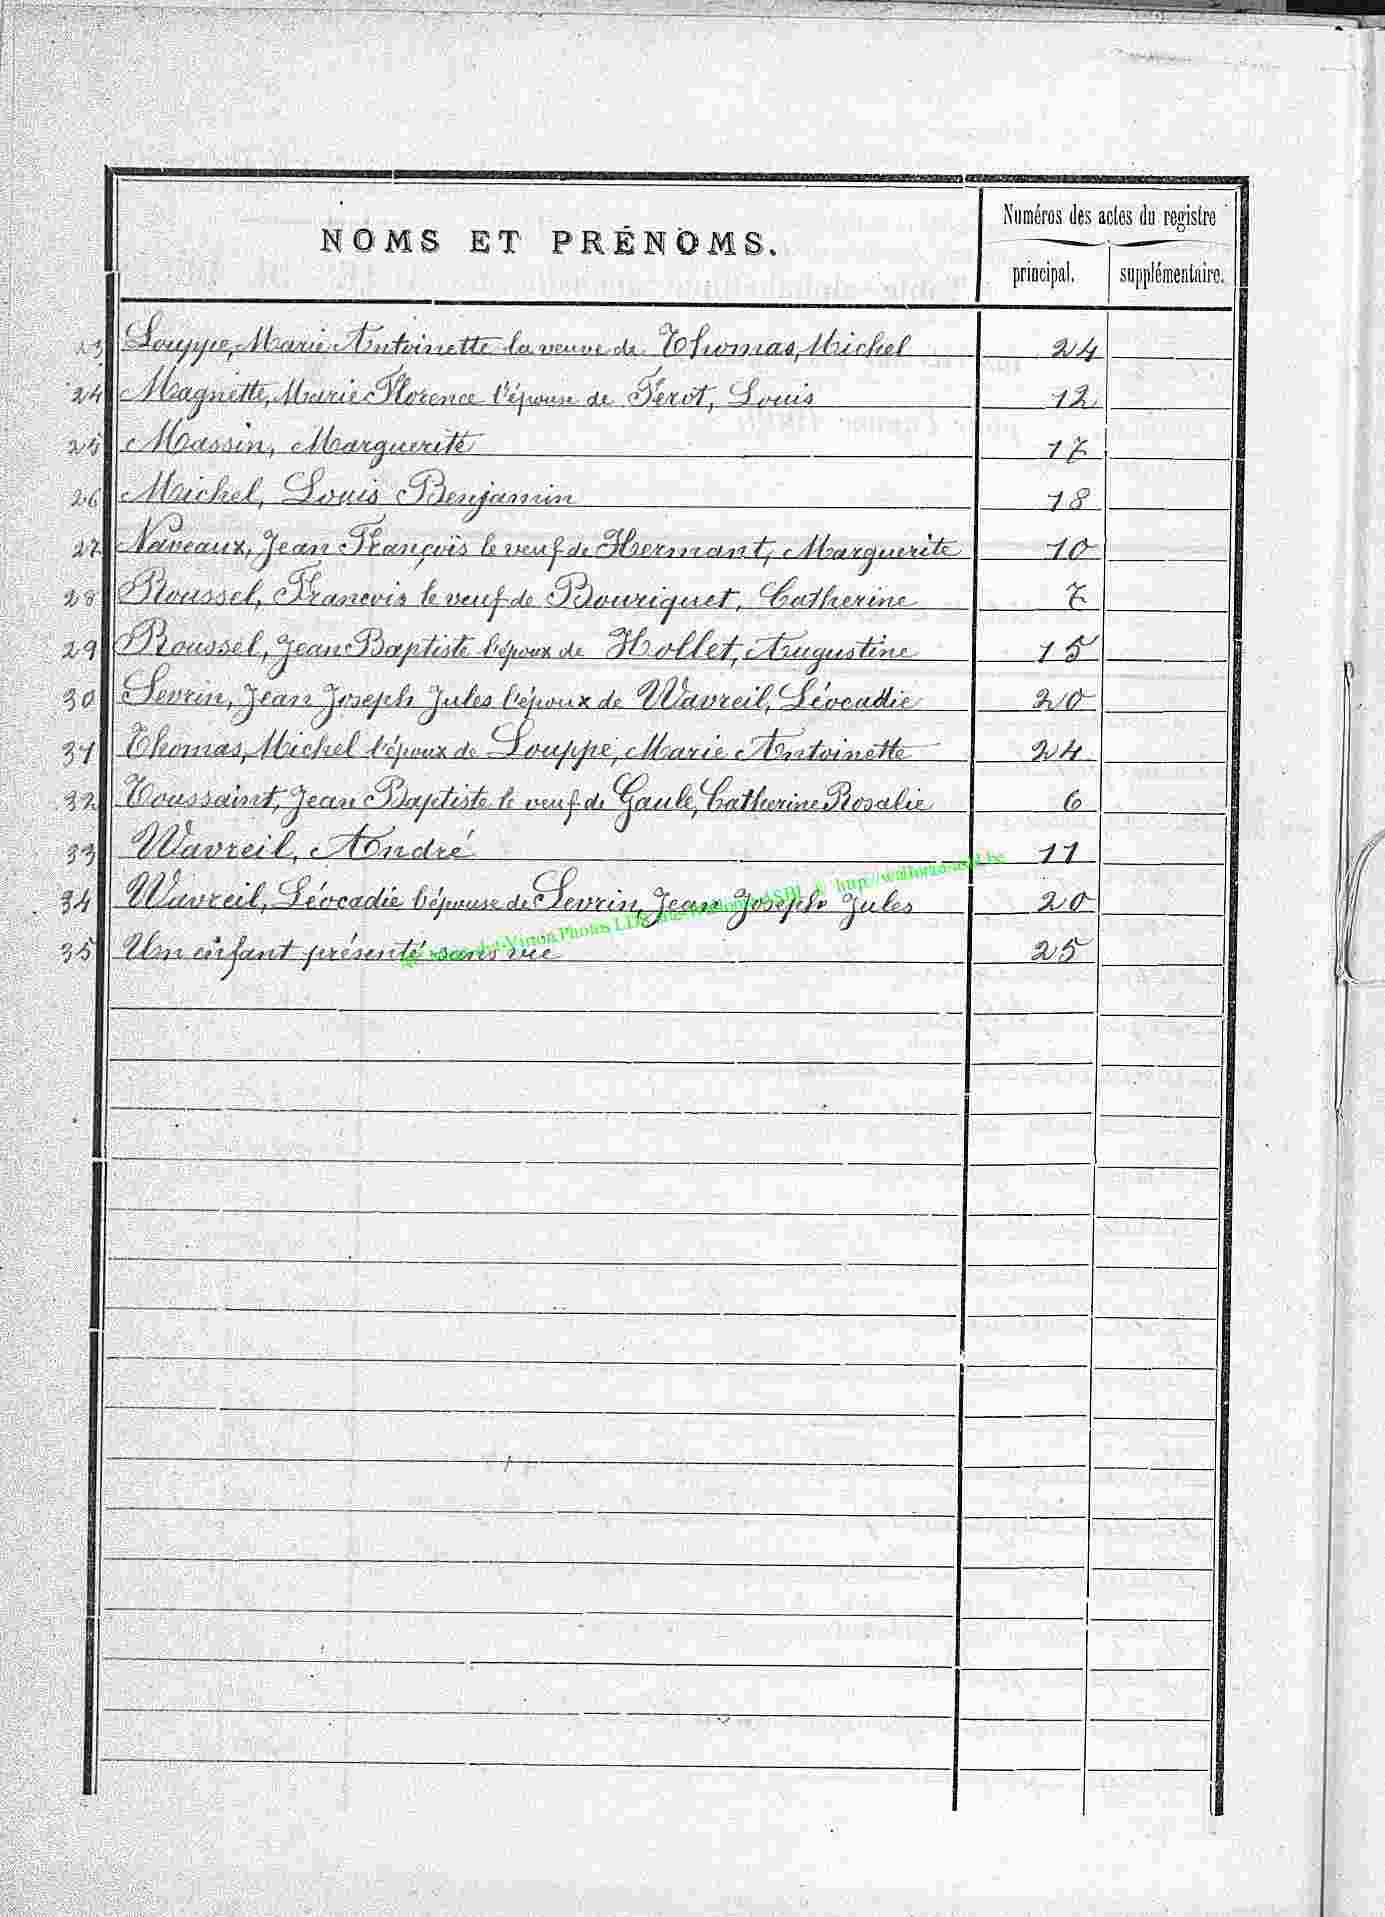 NOMS ET PRÉNOMS.
Numéros des actes du registre
principal.
supplémentaire.
23 Louppe, Marie Antoinette la veuve de Thomas, Michel 24
24 Magnette, Marie Florence l'épouse de Ferot, Louis 12
25 Massin, Marguerite 17
26 Michel, Louis Benjamin 18
27 Naveaux, Jean François le veuf de Hermant, Marguerite 10
28 Roussel, François le veuf de Bouriquet, Catherine 7
29 Roussel, Jean Baptiste l'époux de Hollet, Augustine 15
30 Sevrin, Jean Joseph Jules l'époux de Wavreil, Léocadie 20
31 Thomas, Michel l'époux de Louppe, Marie Antoinette 24
32 Toussaint, Jean Baptiste le veuf de Gaule, Catherine Rosalie 6
33 Wavreil, André 11
34 Wavreil, Léocadie l'épouse de Sevrin, Jean Joseph Jules 20
35 Un enfant présenté sans vie 25